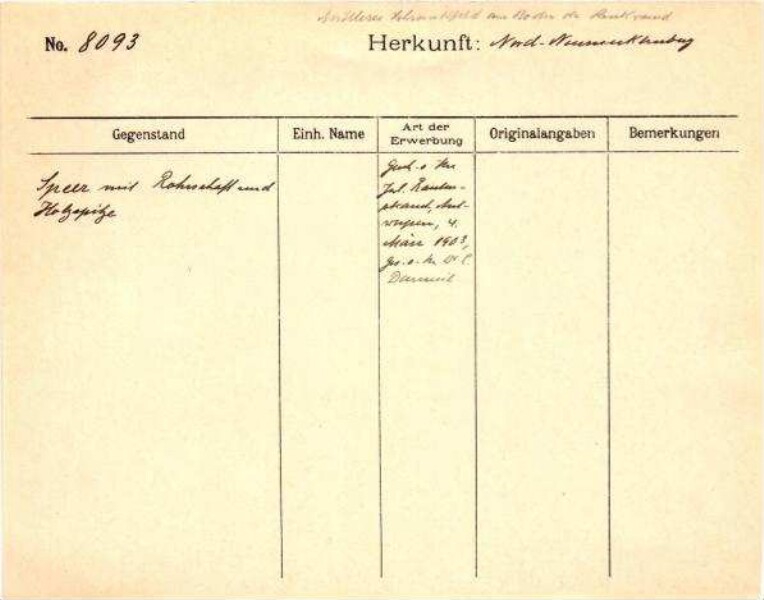 Mittleres Schrankfeld am Boden der
No. 8093 Herkunft: Nord-Neumecklenburg
Gegenstand Einh. Name Art der Erwerbung Originalangaben Bemerkungen
Speer mit Rohrschaft und
Holzspitze
Jul. Rauten-
strauch, Ant-
werpen, 4.
März 1903,